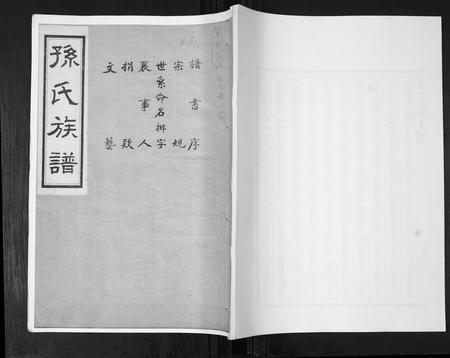 孫氏族譜
譜書序
宗規
世系命名排字
襄事人
捐欵
文藝